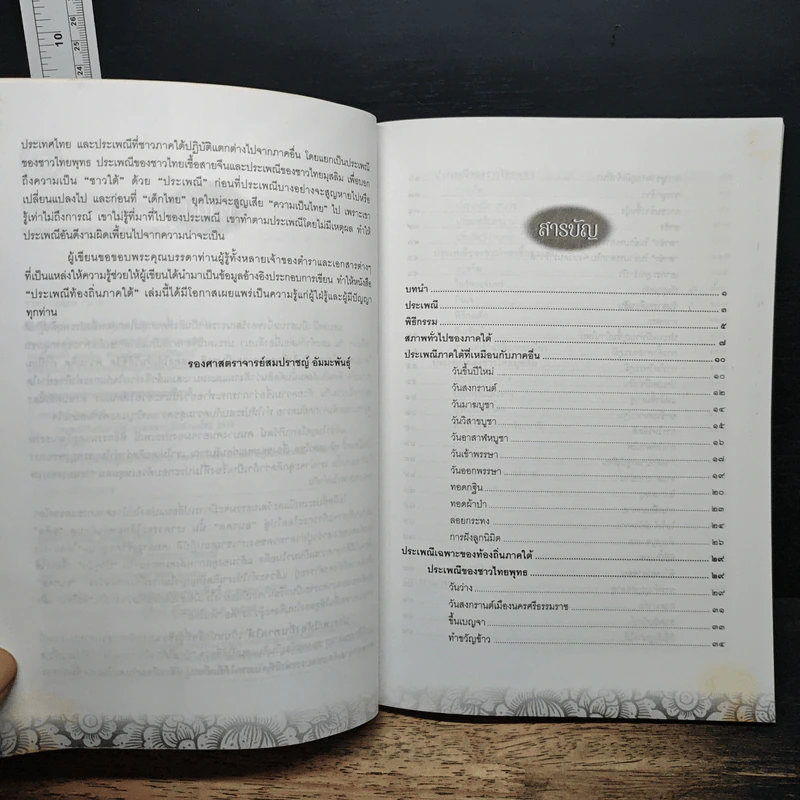 10
26
25
24
ประเทศไทย และประเพณีที่ชาวภาคใต้ปฏิบัติแตกต่างไปจากภาคอื่น โดยแยกเป็นประเพณี
ของชาวไทยพุทธ ประเพณีของชาวไทยเชื้อสายจีนและประเพณีของชาวไทยมุสลิม เพื่อบอก
ถึงความเป็น “ชาวใต้” ด้วย “ประเพณี” ก่อนที่ประเพณีบางอย่างจะสูญหายไปหรือ
เปลี่ยนแปลงไป และก่อนที่ “เด็กไทย” ยุคใหม่จะสูญเสีย “ความเป็นไทย” ไป เพราะเขา
รู้เท่าไม่ถึงการณ์ เขาไม่รู้ที่มาที่ไปของประเพณี เขาทำตามประเพณีโดยไม่มีเหตุผล ทำให้
ประเพณีอันดีงามผิดเพี้ยนไปจากความน่าจะเป็น
ผู้เขียนขอขอบพระคุณบรรดาท่านผู้รู้ทั้งหลายเจ้าของตำราและเอกสารต่างๆ
ที่เป็นแหล่งให้ความรู้ช่วยให้ผู้เขียนได้นำมาเป็นข้อมูลอ้างอิงประกอบการเขียน ทำให้หนังสือ
“ประเพณีท้องถิ่นภาคใต้” เล่มนี้ได้มีโอกาสเผยแพร่เป็นความรู้แก่ผู้ใฝ่รู้และผู้มีปัญญา
ทุกท่าน
รองศาสตราจารย์สมปราชญ์ อัมมะพันธุ์
สารบัญ
บทนำ ๑
ประเพณี ๑
พิธีกรรม ๕
สภาพทั่วไปของภาคใต้ ๗
ประเพณีภาคใต้ที่เหมือนกับภาคอื่น ๑๐
วันขึ้นปีใหม่ ๑๐
วันสงกรานต์ ๑๒
วันมาฆบูชา ๑๓
วันวิสาขบูชา ๑๔
วันอาสาฬหบูชา ๑๖
วันเข้าพรรษา ๑๗
วันออกพรรษา ๑๙
ทอดกฐิน ๒๐
ทอดผ้าป่า ๒๑
ลอยกระทง ๒๕
การฝังลูกนิมิต ๒๖
ประเพณีเฉพาะของท้องถิ่นภาคใต้ ๒๙
ประเพณีของชาวไทยพุทธ ๒๙
วันว่าง ๒๙
วันสงกรานต์เมืองนครศรีธรรมราช ๓๑
ขึ้นเบญจา ๓๓
ทำขวัญข้าว ๓๕